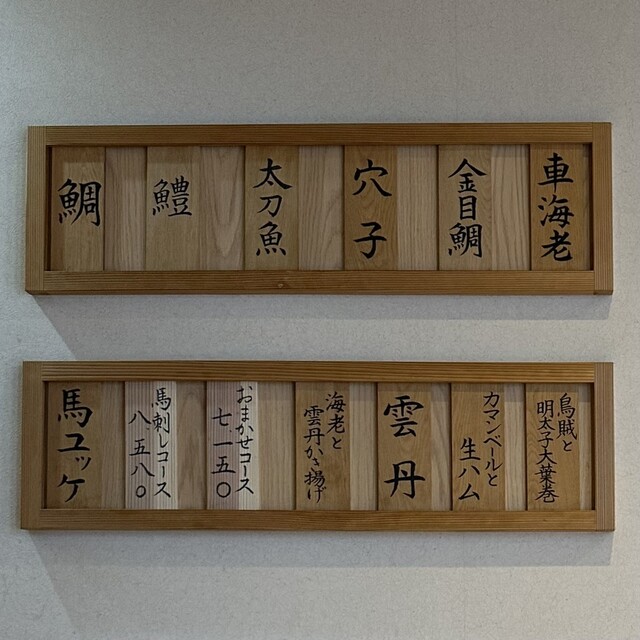 車海老
金目鯛
穴子
太刀魚
鱧
鯛
烏賊と
明太子大葉巻
カマンベールと
生ハム
雲丹
海老と
雲丹かき揚げ
おまかせコース
七一五〇
馬刺しコース
八五八〇
馬ユッケ